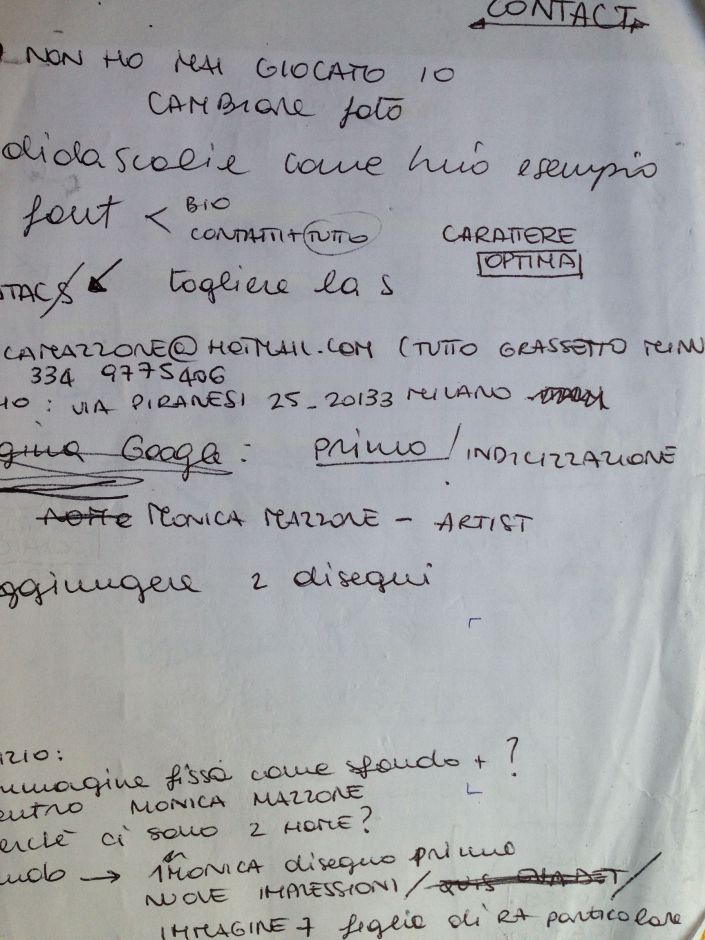 CONTACT
NON HO MAI GIOCATO IO
CAMBIARE foto
didascalie come mio esempio
font < BIO
CONTATTI + TUTTO
CARATTERE
OPTIMA
TACS togliere la s
CAMAZZONE@HOTMAIL.COM (TUTTO GRASSETTO MINU
334 9775406
IO : VIA PIRANESI 25 - 20133 MILANO
gina Google : primo / INDICIZZAZIONE
NOME MONICA MAZZONE - ARTIST
ggiungere 2 disegni
IZIO:
mmagine fissa come sfondo + ?
entro MONICA MAZZONE
erchè ci sono 2 HOME?
ndo → 1 MONICA disegno primo
NUOVE IMPRESSIONI /
IMMAGINE 7 foglia di RA particolare